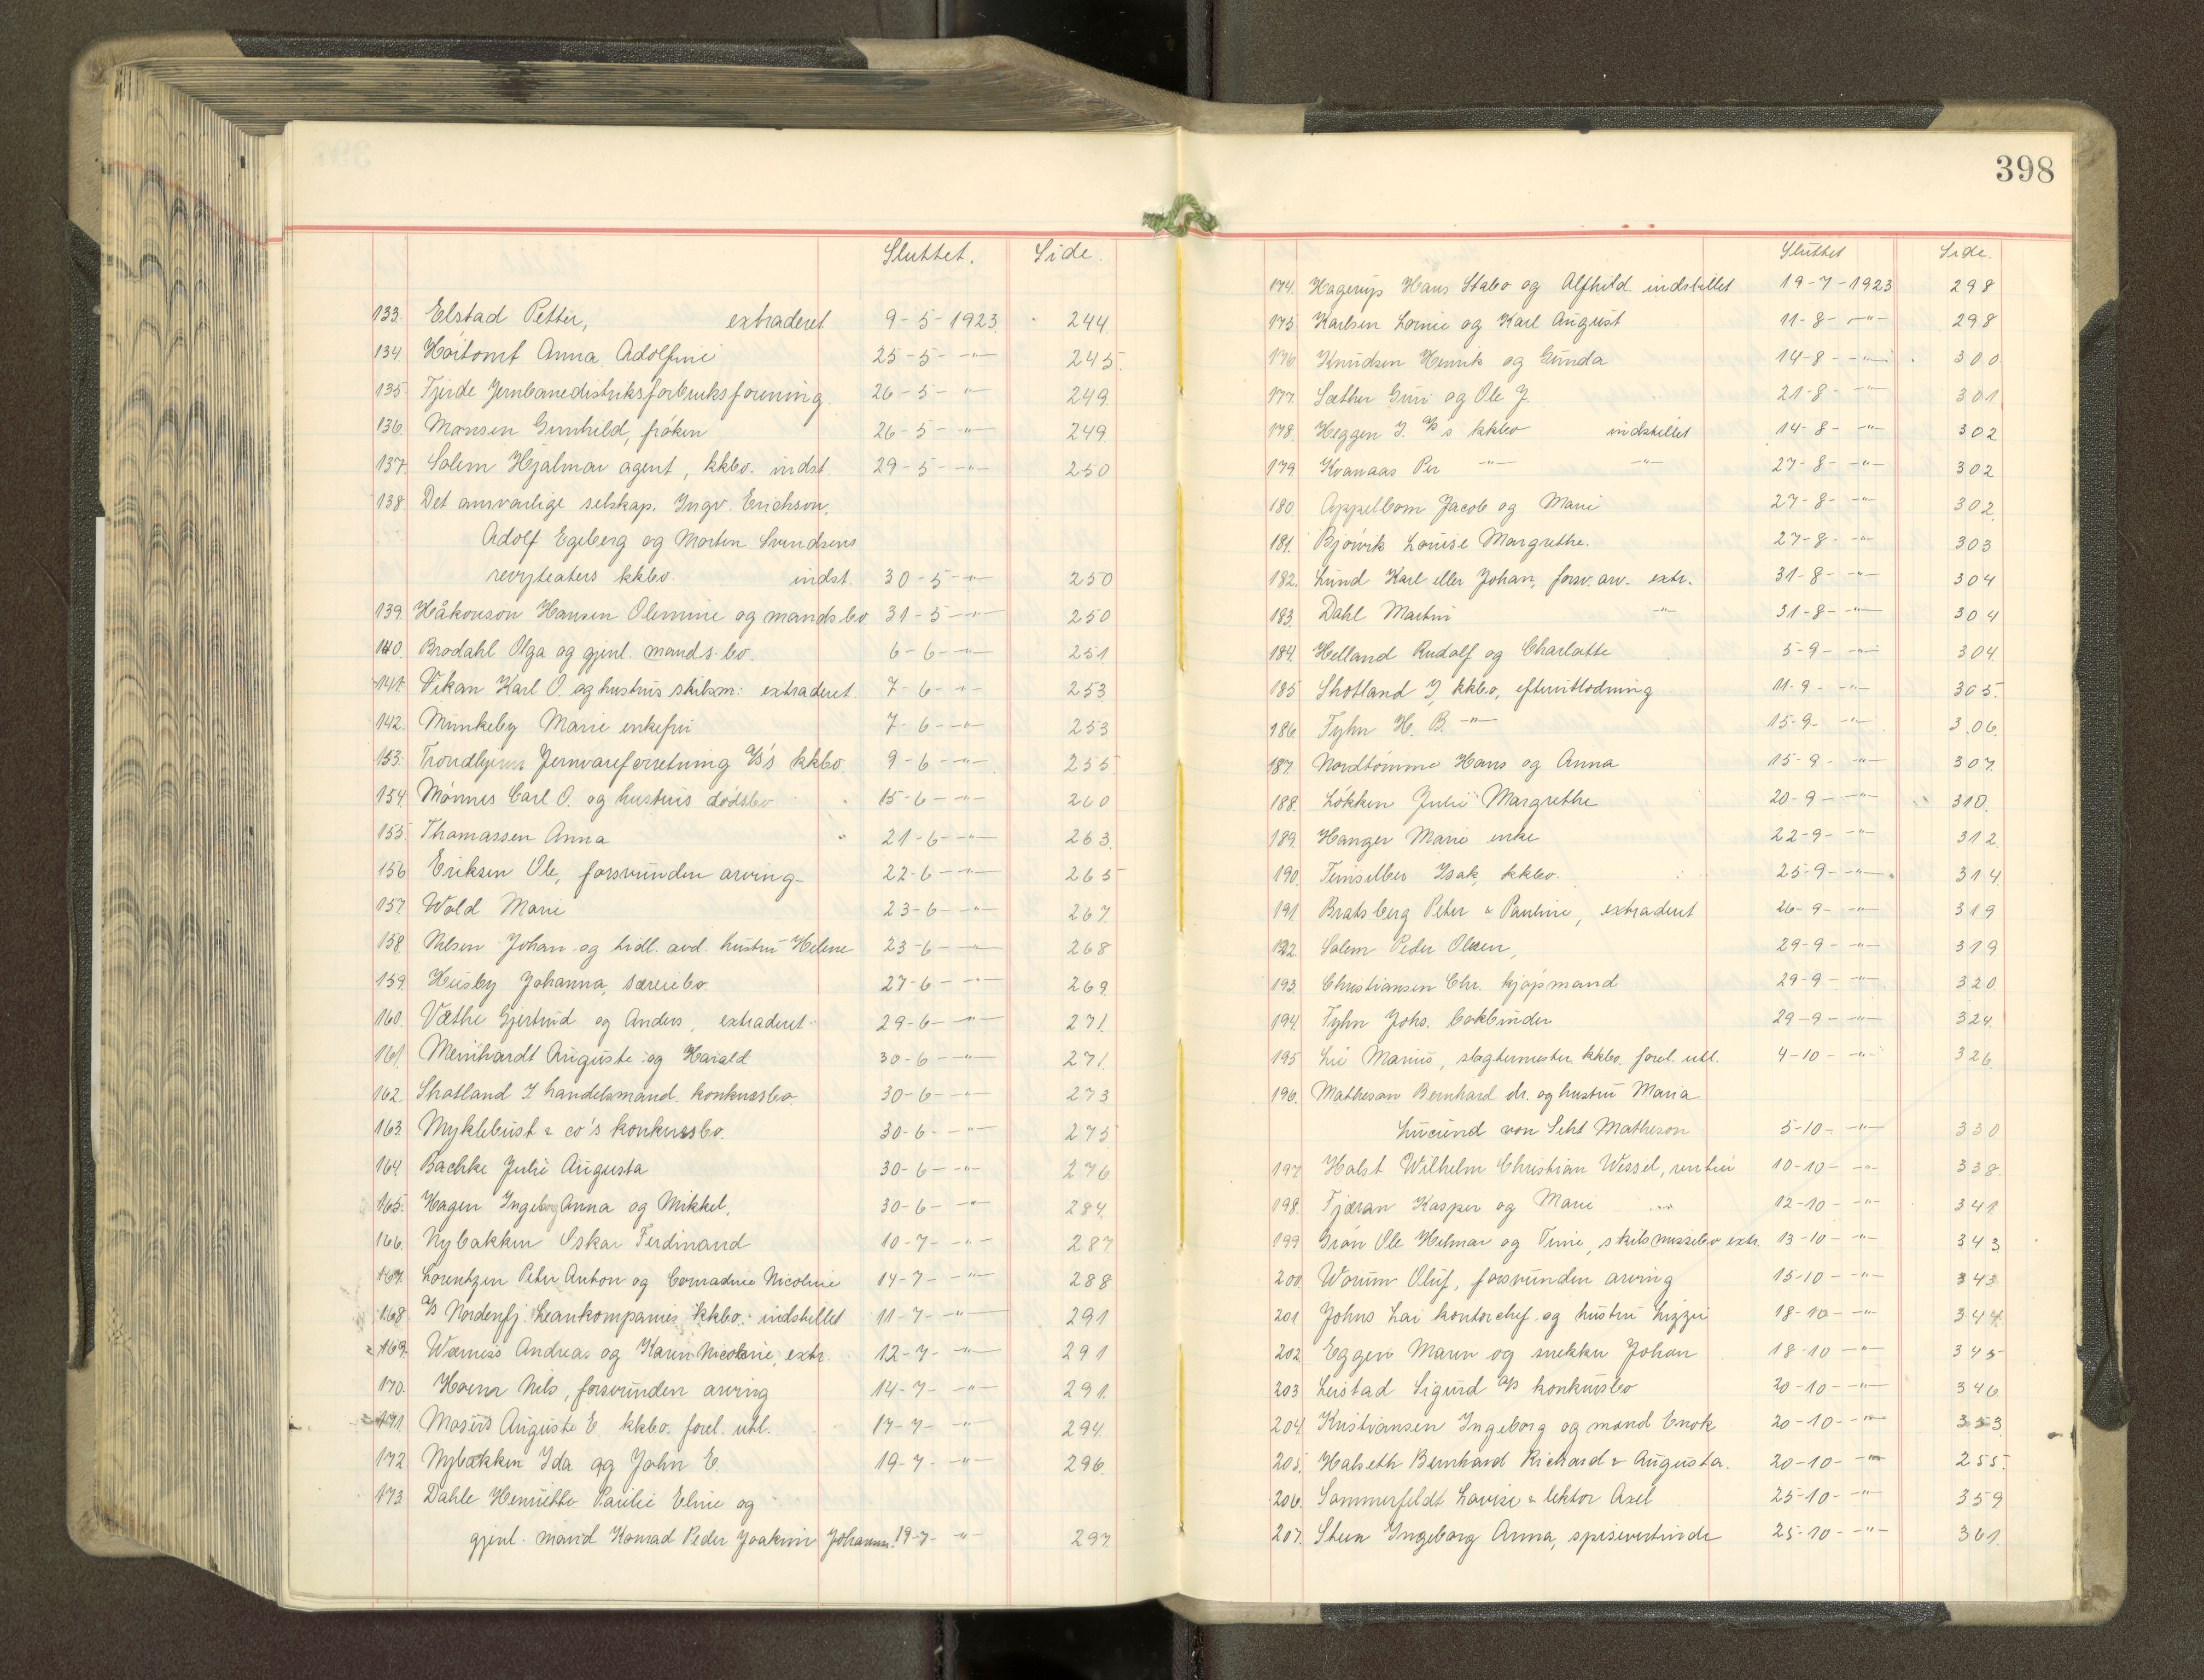 Sluttet. Side.
133. Elstad Petter, extraderet 9-5-1923. 244.
134. Hoitomt Anna Adolfine 25-5- -"- 245.
135. Fjerde Jernbanedistriksforbruksforening. 26-5- -"- 249.
136. Monsen Gunhild, frøken 26-5- -"- 249
137. Solem Hjalmar agent, kkbo. indst. 29-5- -"- 250
138. Det ansvarlige selskap. Ingv. Erichson,
Adolf Egeberg og Morten Svendsens
revyteaters kkbo. indst. 30-5- -"- 250
139. Håkonson Hansen Olemine og mands bo 31-5- -"- 250
140. Brodahl Olga og gjenl. mands bo. 6-6- -"- 251
141. Vikan Karl O. og hustrus skilsm: extraderet. 7-6- -"- 253
142. Munkeby Marie enkefru 7-6- -"- 253
153. Trondhjems Jernvareforretning A/S's kkbo. 9-6- -"- 255
154. Mønnes Carl O. og hustrus dødsbo 15-6- -"- 260
155. Thomassen Anna 21-6- -"- 263.
156 Eriksen Ole, forsvunden arving 22-6- -"- 265
157 Wold Marie 23-6- -"- 267.
158. Nilsen Johan og tidl. avd. hustru Helene 23-6- -"- 268
159. Husby Johanna, særeiebo. 27-6- -"- 269.
160. Væthe Gjertrud og Anders, extraderet. 29-6- -"- 271.
161. Meinhardt Auguste og Harald 30-6- -"- 271.
162. Shotland I. handelsmand. konkursbo. 30-6- -"- 273
163. Myklebust & co's konkursbo. 30-6- -"- 275
164. Bachke Julie Augusta 30-6- -"- 276.
165. Hagen Ingeborg Anna og Mikkel. 30-6- -"- 284.
166. Nybakken Oskar Ferdinand 10-7- -"- 287
167. Lorentzen Peter Anton og Conradine Nicoline 14-7- -"- 288
168. A/S Nordenfj. Leankompanies kkbo. indstillet 11-7- -"- 291
169. Wærness Andreas og Karen Nicoline, extr. 12-7- -"- 291
170. Hoem Nils, forsvunden arving 14-7- -"- 291.
171. Auguste E. kkbo. forel. utl. 17-7- -"- 294.
172. Nybakken Ida og John E. 19-7- -"- 296.
173. Dahle Henriette Pauline Eline og
gjenl. mand Konrad Peder Joakim Johannes. 19-7- -"- 297.
398
Sluttet Side.
174. Hagerup Hans Stabo og Alfhild. indstillet 19-7-1923 298
175. Karlsen Lornie og Karl August 11-8- -"- 298
176. Knudsen Henrik og Gunda 14-8- -"- 300
177. Sæther Guri og Ole J. 21-8- -"- 301
178. Heggen J. A/S's kkbo indstillet 14-8- -"- 302
179. Kvanaas Per -"- -"- 27-8- -"- 302
180. Appelbom Jacob og Marie 27-8- -"- 302.
181. Bjørvik Louise Margrethe. 27-8- -"- 303
182. Lund Karl eller Johan, forsv. arv. extr. 31-8- -"- 304
183. Dahl Martin -"- 31-8- -"- 304
184. Helland Rudolf og Charlotte 5-9- -"- 304.
185 Shotland I, kkbo, efterutlodning 11-9- -"- 305.
186. Fyhn H. B. -"- 15-9- -"- 306.
187. Nordtømme Hans og Anna 15-9- -"- 307.
188. Løkken Julie Margrethe 20-9- -"- 310.
189. Hanger Marie enke 22-9- -"- 312.
190. Isak, kkbo. 25-9- -"- 314.
191 Bratsberg Peter & Pauline, extraderet 26-9- -"- 319
192. Solem Peder Olsen, 29-9- -"- 319
193. Christiansen Chr. kjøpmand 29-9- -"- 320
194. Fyhn Johs. bokbinder 29-9- -"- 324.
195 Lie Marius, slagtermester. kkbo. forel. utl. 4-10- -"- 326.
196. Matheson Bernhard dr. og hustru Maria
Lucinde von Matheson 5-10- -"- 330
197 Holst Wilhelm Christian Wessel, rentier 10-10- -"- 338.
198. Fjæran Kasper og Marie 12-10- -"- 341.
199 Grøn Ole Helmar og Tine, skilsmissebo extr. 13-10- -"- 343
200 Worum Oluf, forsvunden arving 15-10- -"- 343
201 Johns Lai kontorchef og hustru Lizzie 18-10- -"- 344.
202 Eggen Maren og snekker Johan 18-10- -"- 345
203 Leistad Sigurd A/S konkursbo 20-10- -"- 346
204. Kristiansen Ingeborg og mand Enok 20-10- -"- 353.
205. Halseth Bernhard Richard & Augusta. 20-10- -"- 255.
206. Sommerfeldt Lovise & lektor Axel 25-10- -"- 359
207. Steen Ingeborg Anna, spisevertinde 25-10- -"- 361.